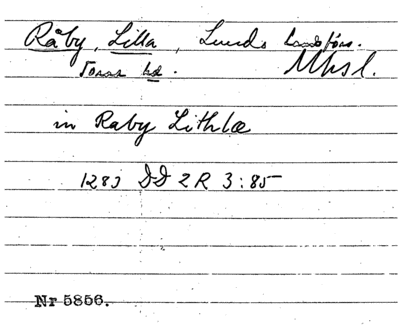 Råby, Lilla, Lunds landsförs.
Torna hd. Mhsl.
in Raby Lithlæ
1283 DD 2R 3:85
Nr 5856.